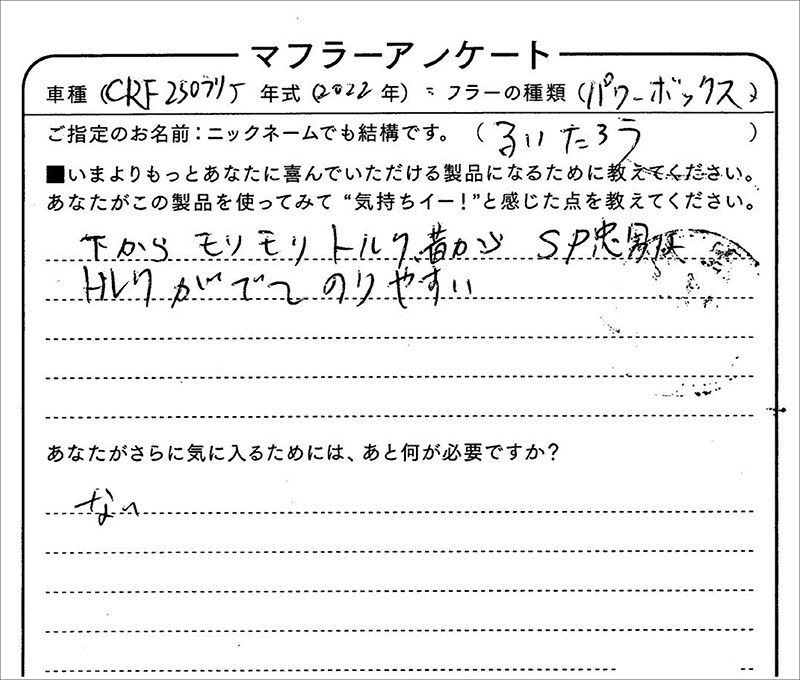 マフラーアンケート
車種 (CRF250ラリー 年式 (2022 年) マフラーの種類 (パワーボックス)
ご指定のお名前：ニックネームでも結構です。 ( るいたろう )
■いまよりもっとあなたに喜んでいただける製品になるために教えてください。
あなたがこの製品を使ってみて “気持ちイー！”と感じた点を教えてください。
下から モリモリ トルク、昔から SP忠男は
トルクがでて のりやすい
あなたがさらに気に入るためには、あと何が必要ですか？
ない